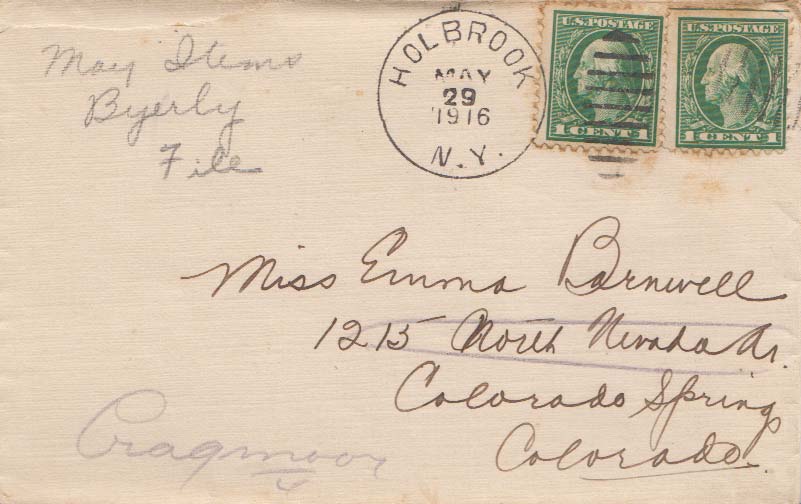 May Items
Byerly
File
HOLBROOK
MAY
29
1916
N.Y.
U.S. POSTAGE
1 CENT 1
U.S. POSTAGE
1 CENT 1
Miss Emma Barnwell
1215 North Nevada Av.
Colorado Springs
Colorado.
Cragmoor